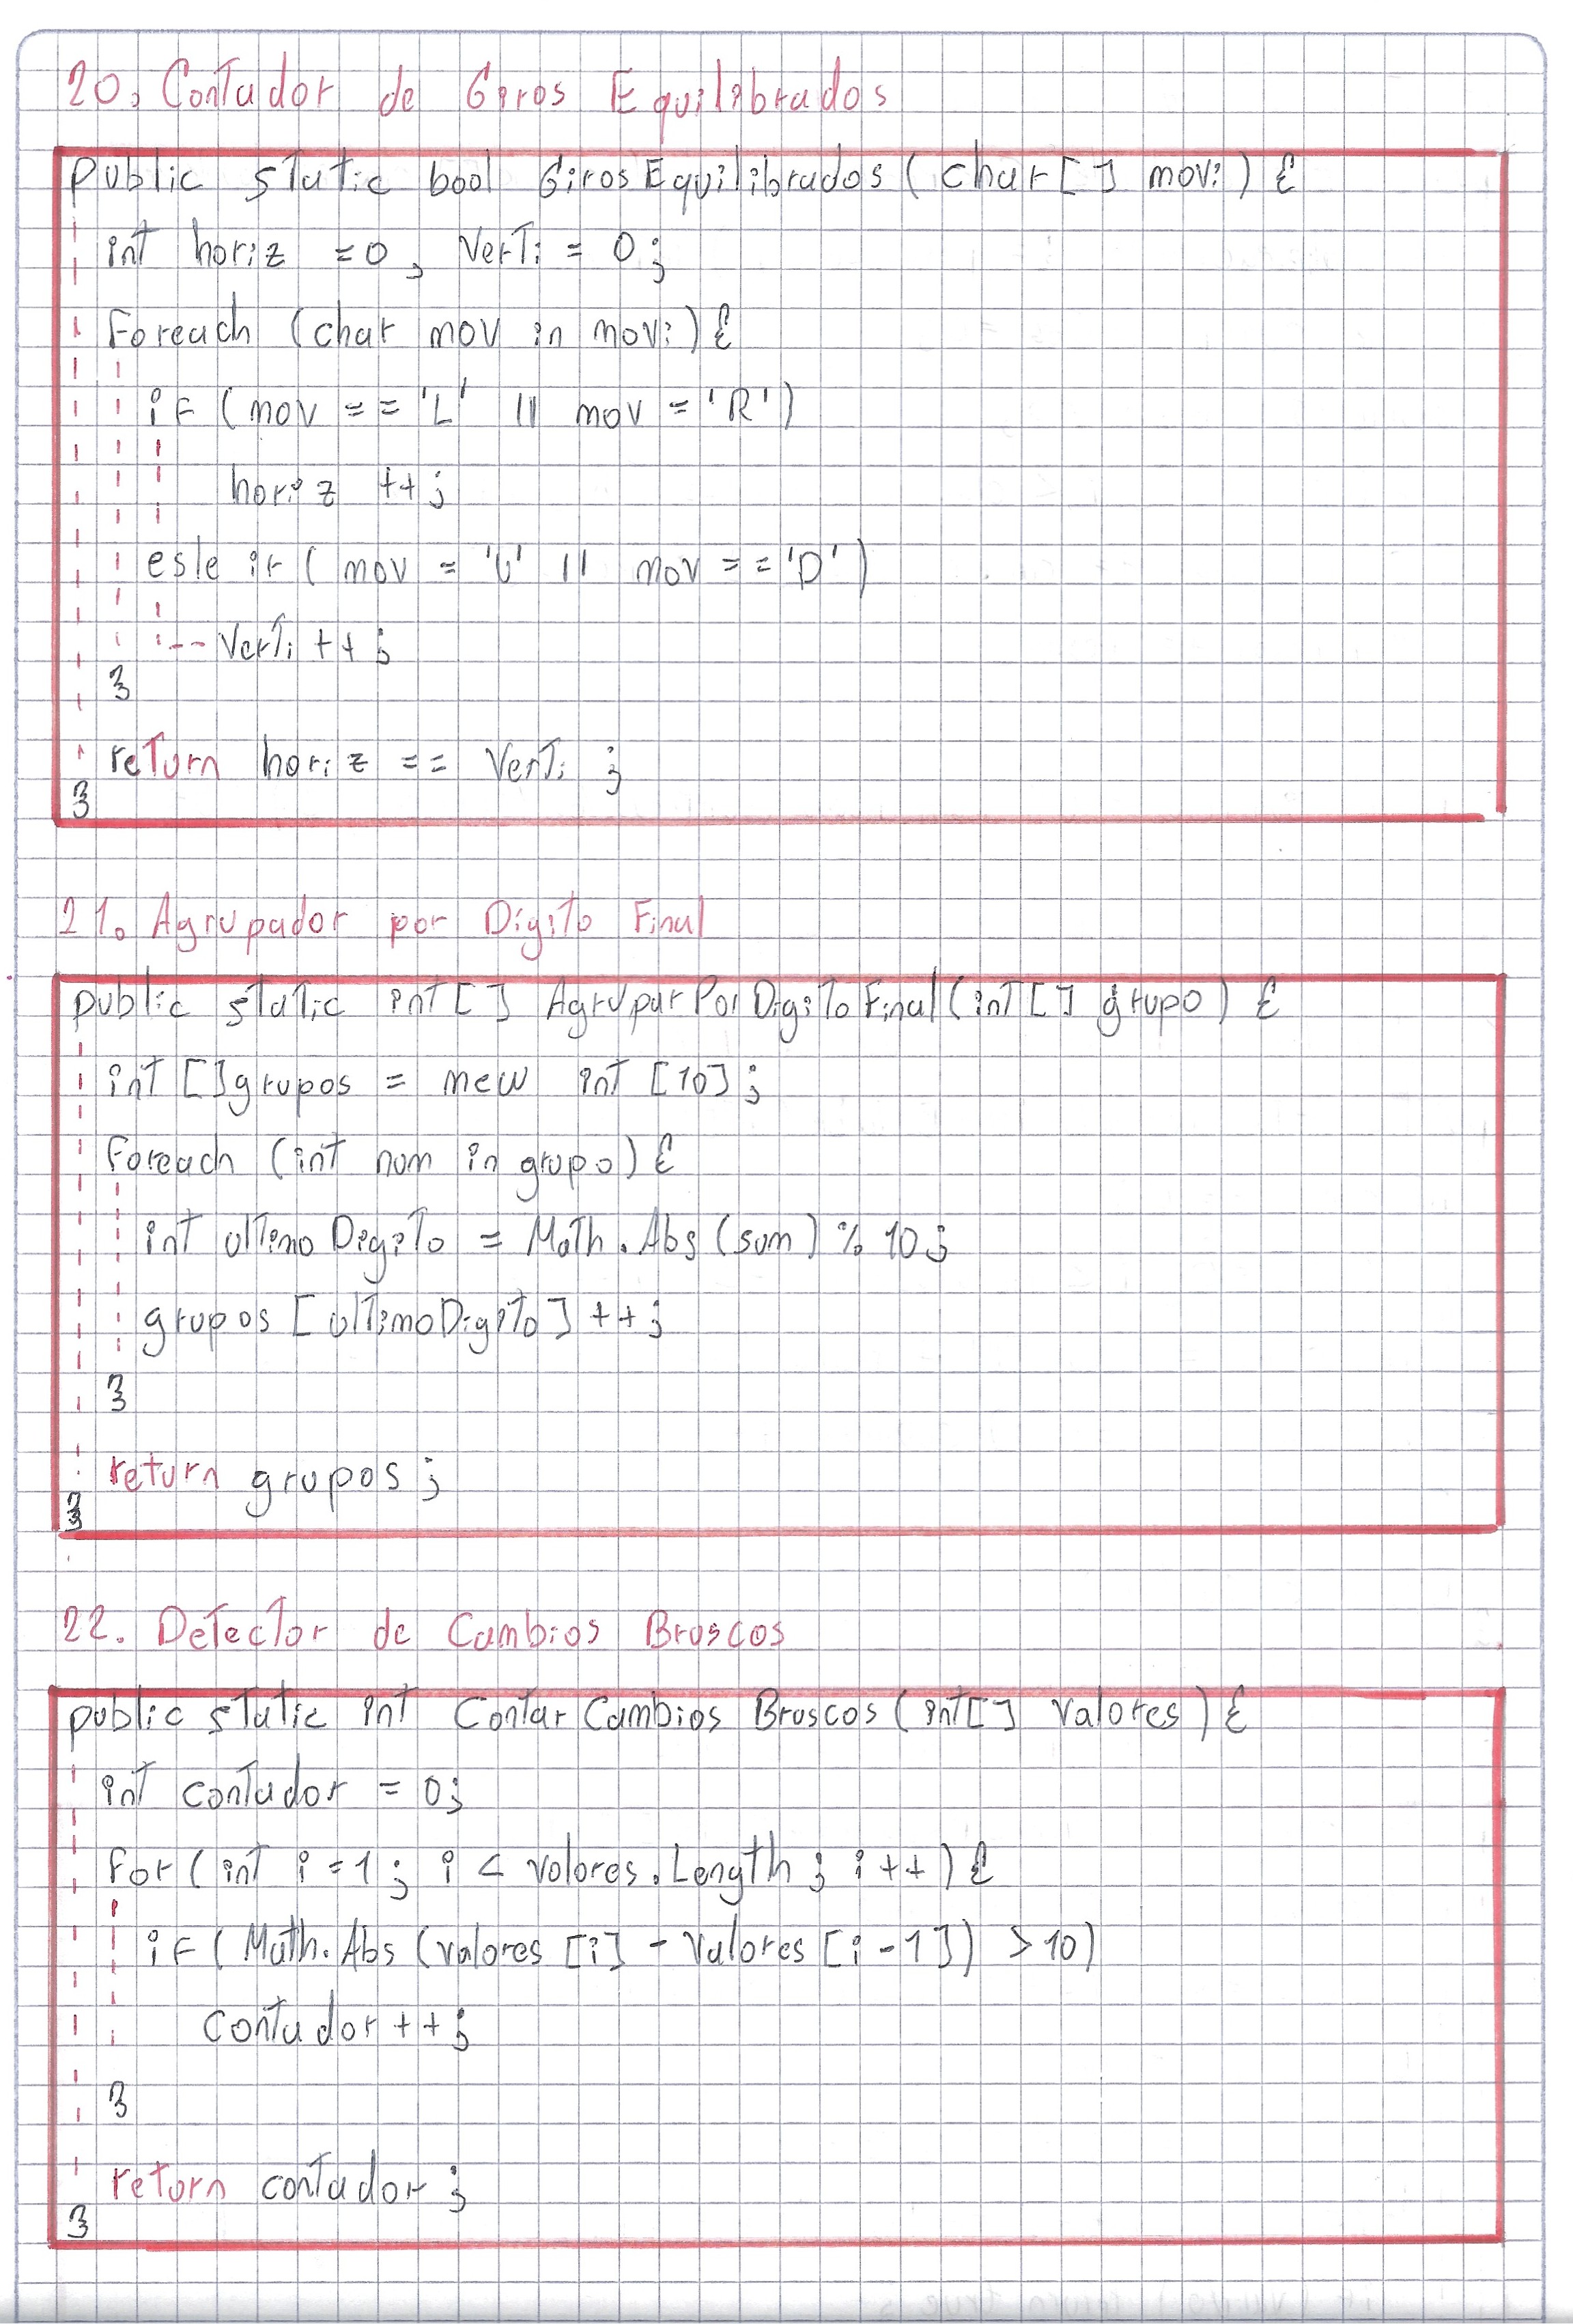 20. Contador de Giros Equilibrados
public static bool GirosEquilibrados (char[] movi) {
int horiz = 0, verti = 0;
Foreach (char mov in movi) {
if (mov == 'L' || mov = 'R')
horiz ++;
esle if ( mov = 'U' || mov == 'D')
verti ++;
}
return horiz == verti ;
}
21. Agrupador por Digito Final
public static int[] AgruparPorDigitoFinal (int[] grupo) {
int []grupos = new int [10];
Foreach (int num in grupo) {
int ultimoDigito = Math.Abs (sum) % 10;
grupos [ultimoDigito] ++;
}
return grupos ;
}
22. Detector de Cambios Bruscos
public static int ContarCambios Bruscos (int[] valores) {
int contador = 0;
For (int i = 1 ; i < valores.Length ; i++) {
if (Math.Abs (valores [i] - valores [i - 1]) > 10)
contador ++;
}
return contador ;
}